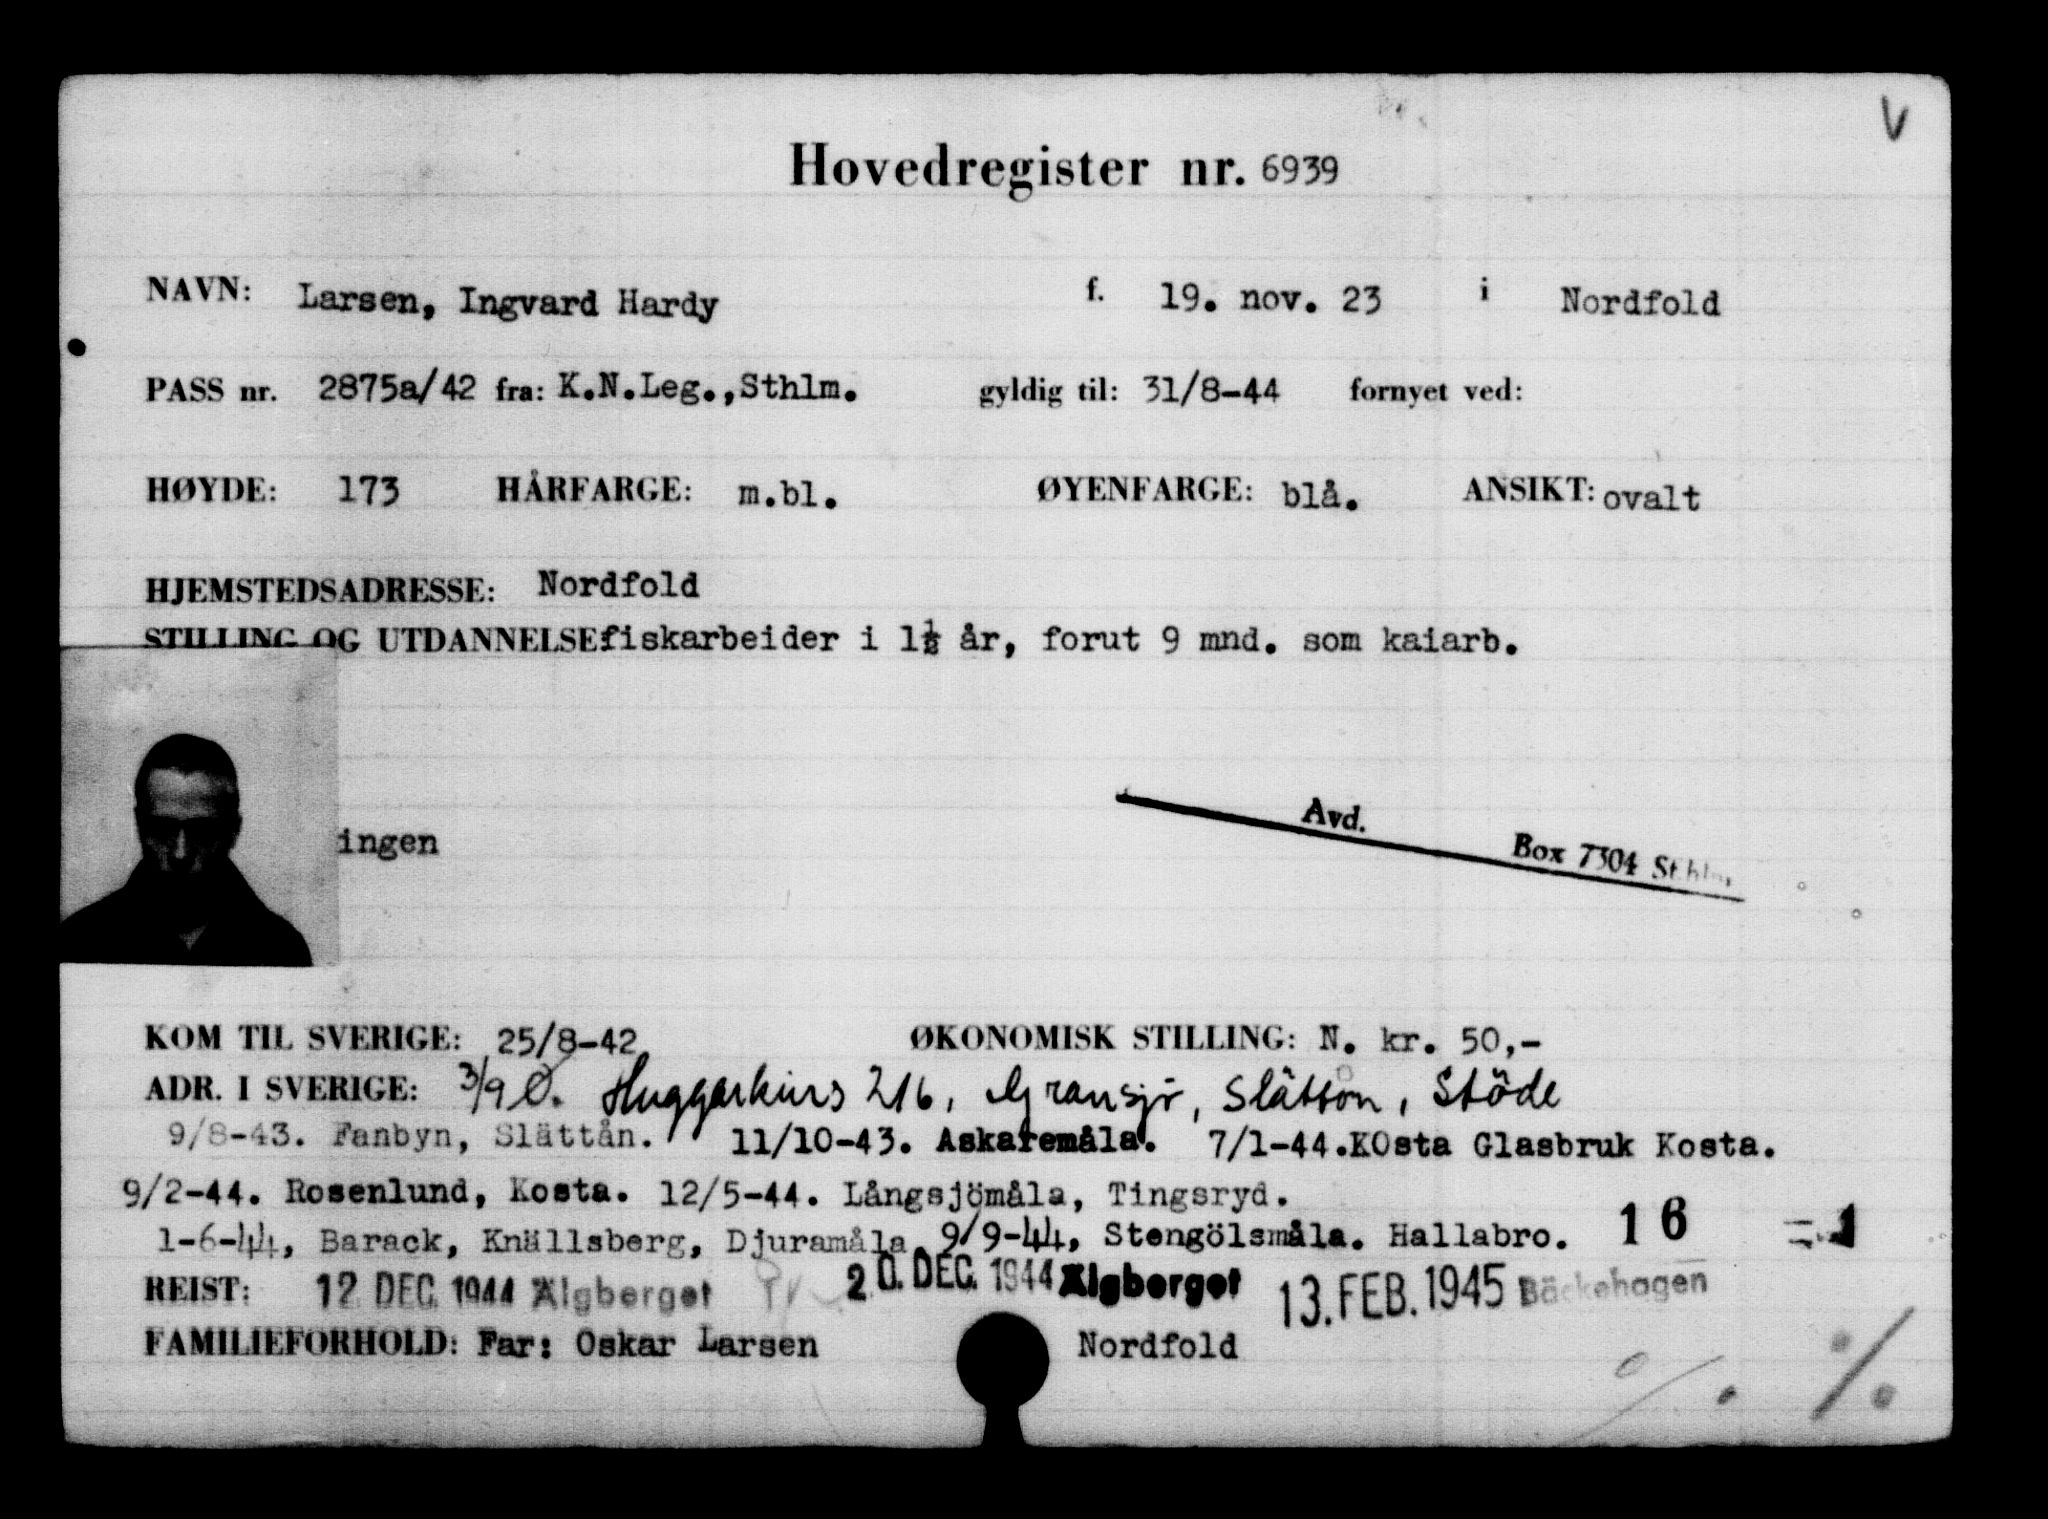 V
Hovedregister nr. 6939
NAVN: Larsen, Ingvard Hardy f. 19. nov. 23 i Nordfold
PASS nr. 2875a/42 fra: K.N.Leg.,Sthlm. gyldig til: 31/8-44 fornyet ved:
HØYDE: 173 HÅRFARGE: m.bl. ØYENFARGE: blå. ANSIKT: ovalt
HJEMSTEDSADRESSE: Nordfold
STILLING OG UTDANNELSE: fiskarbeider i 1½ år, forut 9 mnd. som kaiarb.
Avd. Box 7304 Sthlm,
ingen
KOM TIL SVERIGE: 25/8-42 ØKONOMISK STILLING: N. kr. 50,-
ADR. I SVERIGE: 3/9 Huggarkurs 216, Gransjö, Slättön, Stöde
9/8-43. Fanbyn, Slättån. 11/10-43. Askaremåla. 7/1-44.KOsta Glasbruk Kosta.
9/2-44. Rosenlund, Kosta. 12/5-44. Långsjömåla, Tingsryd.
1-6-44, Barack, Knällsberg, Djuramåla 9/9-44, Stengölsmåla. Hallabro. 16 = 1
REIST: 12 DEC. 1944 Älgberget 20. DEC. 1944 Älgberget 13. FEB. 1945 Bäckehagen
FAMILIEFORHOLD: Far: Oskar Larsen Nordfold